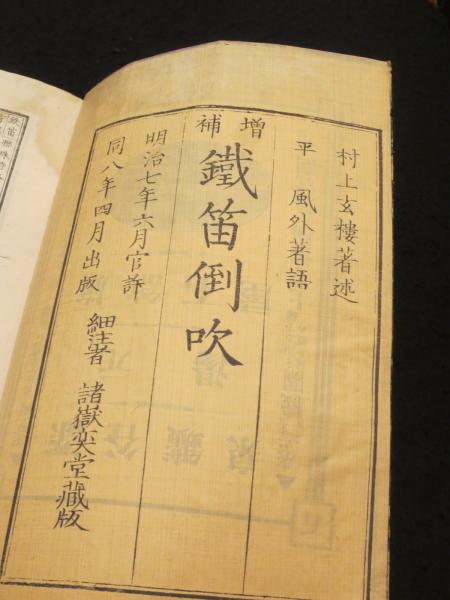 村上玄樓著述
平 風外著語
增補
鐵笛倒吹
明治七年六月官許
同八年四月出版
細注者 諸嶽奕堂藏版